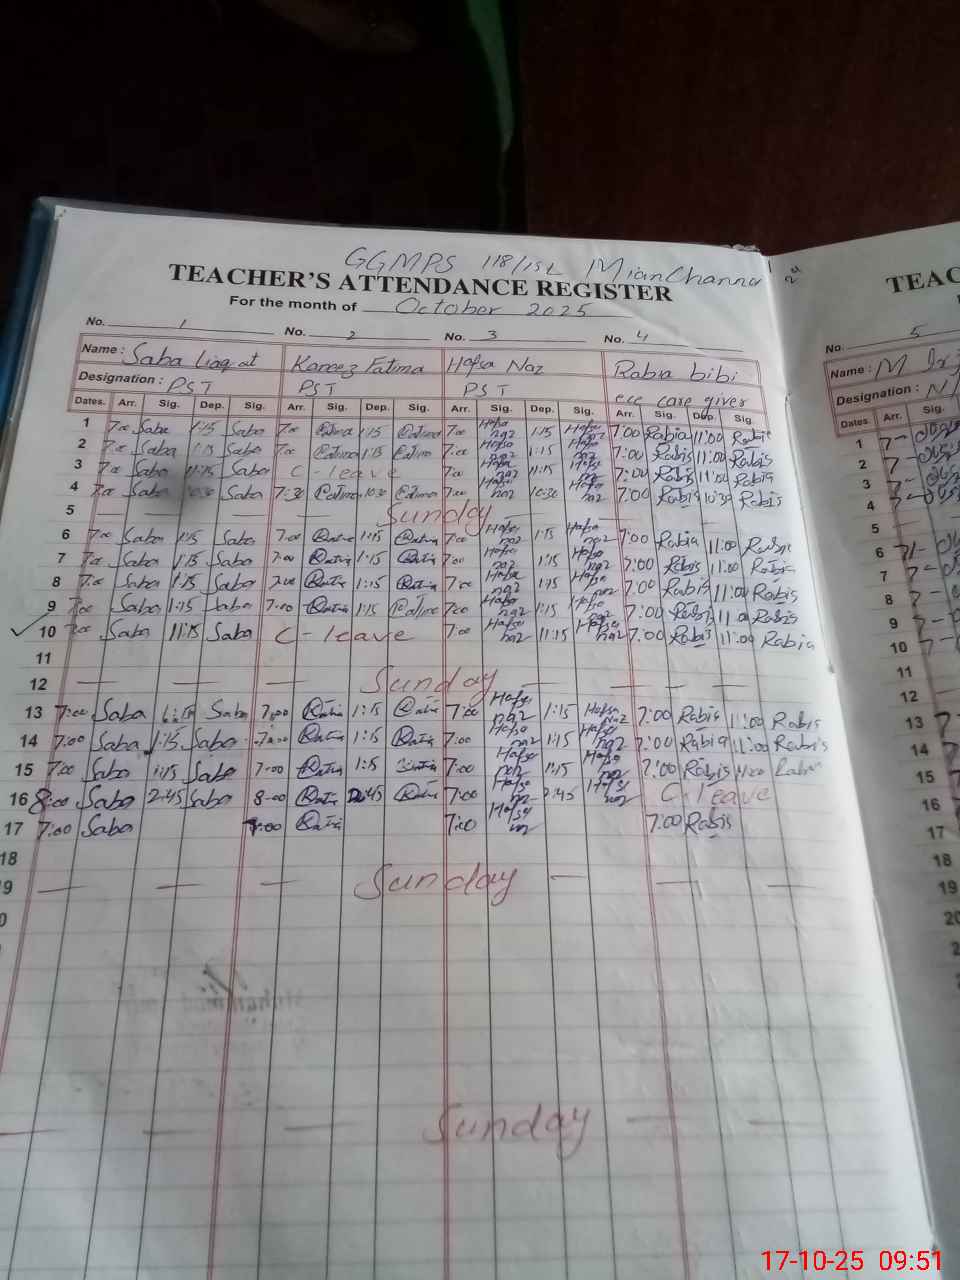 GGMPS 118/15L Mian Channu
TEACHER'S ATTENDANCE REGISTER
For the month of October 2025
No. 1 No. 2 No. 3 No. 4
Name : Saba Liaqat Kaneez Fatima Hafsa Naz Rabia bibi
Designation : PST PST PST ece care giver
Dates. Arr. Sig. Dep. Sig. Arr. Sig. Dep. Sig. Arr. Sig. Dep. Sig. Arr. Sig. Dep. Sig.
1 7:00 Saba 1:15 Saba 7:00 Fatima 1:15 Fatima 7:00 Hafsa naz 1:15 Hafsa naz 7:00 Rabia 11:00 Rabia
2 7:00 Saba 1:15 Saba 7:00 Fatima 1:15 Fatima 7:00 Hafsa naz 1:15 Hafsa naz 7:00 Rabis 11:00 Rabis
3 7:00 Saba 11:15 Saba C-leave 7:00 Hafsa naz 11:15 Hafsa naz 7:00 Rabis 11:00 Rabia
4 7:00 Saba 10:30 Saba 7:30 Fatima 10:30 Fatima 7:00 Hafsa naz 10:30 Hafsa naz 7:00 Rabis 10:30 Rabis
5 — — — — Sunday — — — —
6 7:00 Saba 1:15 Saba 7:00 1:15 7:00 Hafsa naz 1:15 Hafsa naz 7:00 Rabia 11:00 Rabia
7 7:00 Saba 1:15 Saba 7:00 1:15 7:00 Hafsa naz 1:15 Hafsa naz 7:00 Rabis 11:00 Rabia
8 7:00 Saba 1:15 Saba 7:00 1:15 7:00 Hafsa naz 1:15 Hafsa naz 7:00 Rabis 11:00 Rabis
9 7:00 Saba 1:15 Saba 7:00 1:15 Fatima 7:00 Hafsa naz 1:15 Hafsa naz 7:00 Rabis 11:00 Rabis
10 7:00 Saba 11:15 Saba C-leave 7:00 Hafsa naz 11:15 Hafsa naz 7:00 Rabis 11:00 Rabia
11
12 — — — Sunday — — — —
13 7:00 Saba Saba 7:00 1:15 7:00 Hafsa naz 1:15 Hafsa naz 7:00 Rabis 11:00 Rabis
14 7:00 Saba 1:15 Saba 7:00 1:15 7:00 Hafsa naz 1:15 Hafsa naz 7:00 Rabia 11:00 Rabis
15 7:00 Saba 1:15 Saba 7:00 1:15 7:00 Hafsa naz 1:15 Hafsa naz 7:00 Rabis 11:00 Rabis
16 8:00 Saba 2:45 Saba 8:00 2:45 7:00 Hafsa naz 2:45 Hafsa naz C-leave
17 7:00 Saba 7:00 7:00 Hafsa naz 7:00 Rabis
18
9 — — — Sunday — — —
0
— — — Sunday — —
TEAC
No. 5
Name : M
Designation :
Dates. Arr. Sig.
1
2
3
4
5
6
7
8
9
10
11
12
13
14
15
16
17
18
19
20
17-10-25 09:51